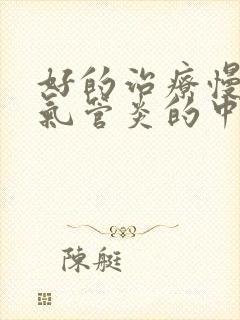 好的治療慢
氣管炎的中
陳艇